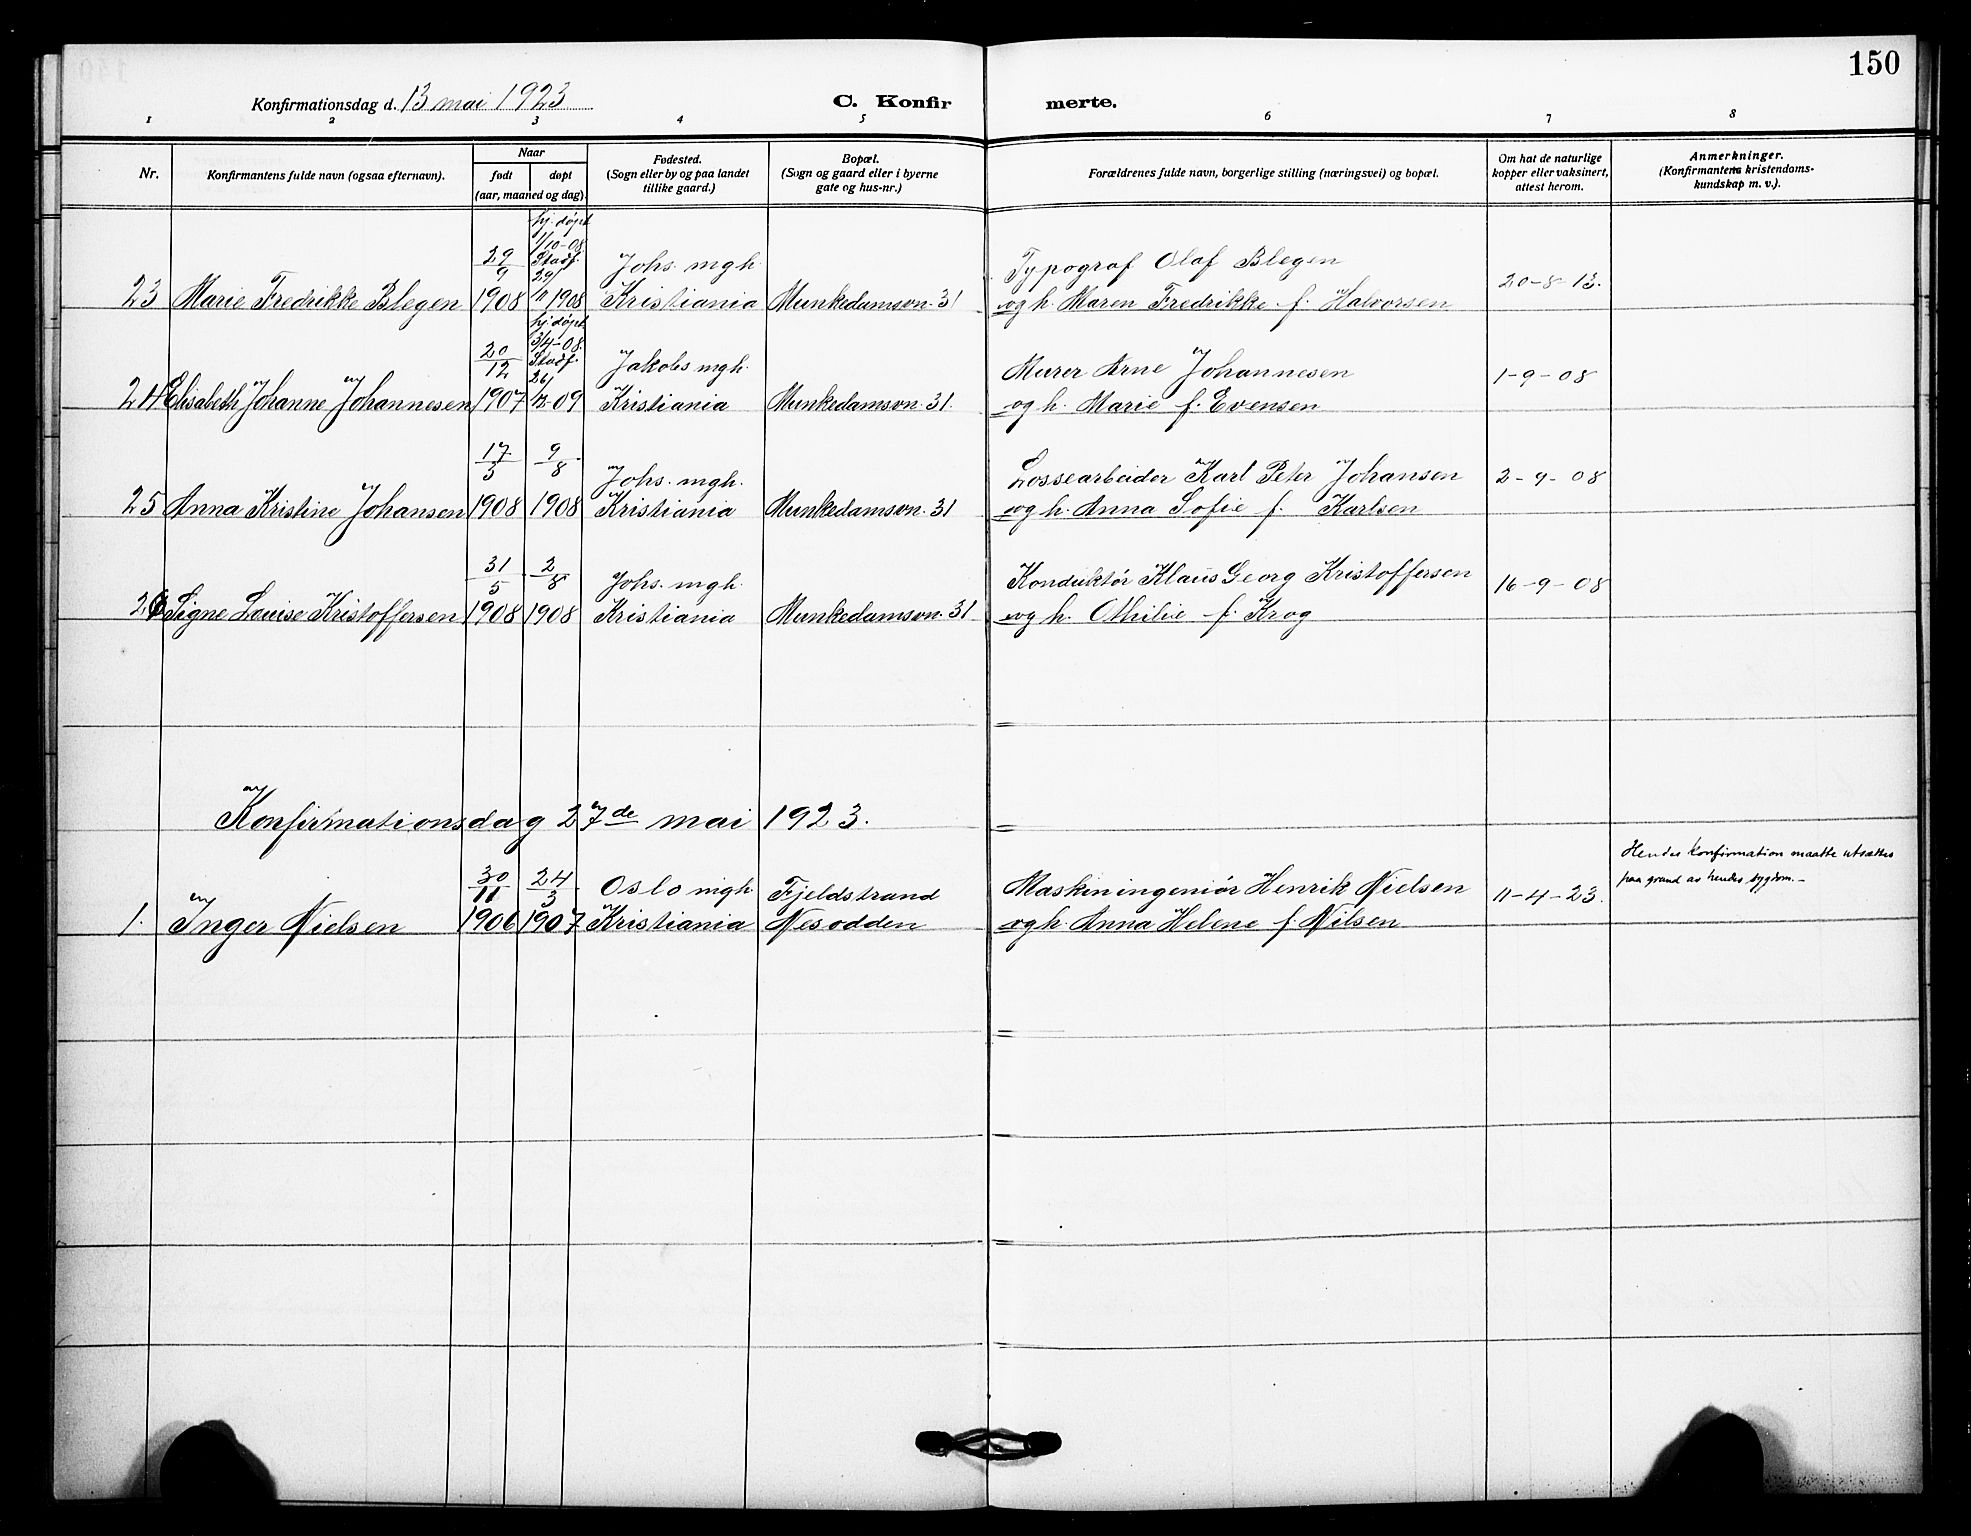 150
Konfirmationsdag d. 13 mai 1923
C. Konfirmerte.
1 2 3 4 5 6 7 8
Nr.
Konfirmantens fulde navn (ogsaa efternavn).
Naar
født døpt
(aar, maaned og dag).
Fødested.
(Sogn eller by og paa landet
tillike gaard.)
Bopæl.
(Sogn og gaard eller i byerne
gate og hus-nr.)
Forældrenes fulde navn, borgerlige stilling (næringsvei) og bopæl.
Om hat de naturlige
kopper eller vaksinert,
attest herom.
Anmerkninger.
(Konfirmantens kristendoms-
kundskap m. v.).
23 Marie Fredrikke Blegen
29/9 1908
hj. døpt
1/10-08
Stadf.
29/11 1908
Johs. mgh.
Kristiania
Munkedamsvn. 31
Typograf Olaf Blegen
og h. Maren Fredrikke f. Halvorsen
20-8-13.
24 Elisabeth Johanne Johannesen
20/12 1907
hj. døpt
3/4-08.
Stadf.
26/12-09
Jakobs mgh.
Kristiania
Munkedamsvn. 31.
Murer Arne Johannesen
og h. Marie f. Evensen
1-9-08
25 Anna Kristine Johansen
17/5 1908
9/8 1908
Johs. mgh.
Kristiania
Munkedamsvn. 31
Lossearbeider Karl Peter Johansen
og h. Anna Sofie f. Karlsen
2-9-08
26 Signe Louise Kristoffersen
31/5 1908
2/8 1908
Johs. mgh.
Kristiania
Munkedamsvn. 31
Konduktör Klaus Georg Kristoffersen
og h. Othilie f. Krog
16-9-08
Konfirmationsdag 27de mai 1923.
1. Inger Nielsen
30/11 1906
24/3 1907
Oslo mgh.
Kristiania
Fjeldstrand
Nesodden
Maskiningeniör Henrik Nielsen
og h. Anna Helene f. Nilsen
11-4-23.
Hendes konfirmation maatte utsættes
paa grund av hendes sygdom.-